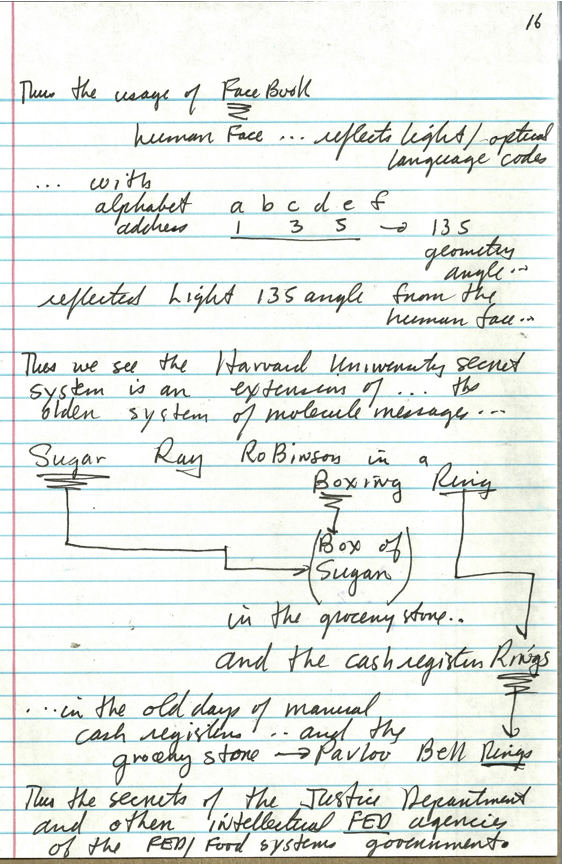 16
Thus the usage of FaceBook
human Face ... reflects light/optical
language codes
... with
alphabet a b c d e f
address 1 3 5 → 135
geometry
angle...
reflected Light 135 angle from the
human face...
Thus we see the Harvard University secret
system is an extension of ... the
olden system of molecule messages...
Sugar Ray RoBinson in a
Boxing Ring
(Box of
Sugar)
in the grocery store..
and the cash register Rings
....in the old days of manual
cash registers .. and the
grocery store → Pavlov Bell Rings
Thus the secrets of the Justice Department
and other intellectual FED agencies
of the FED/Food systems governments